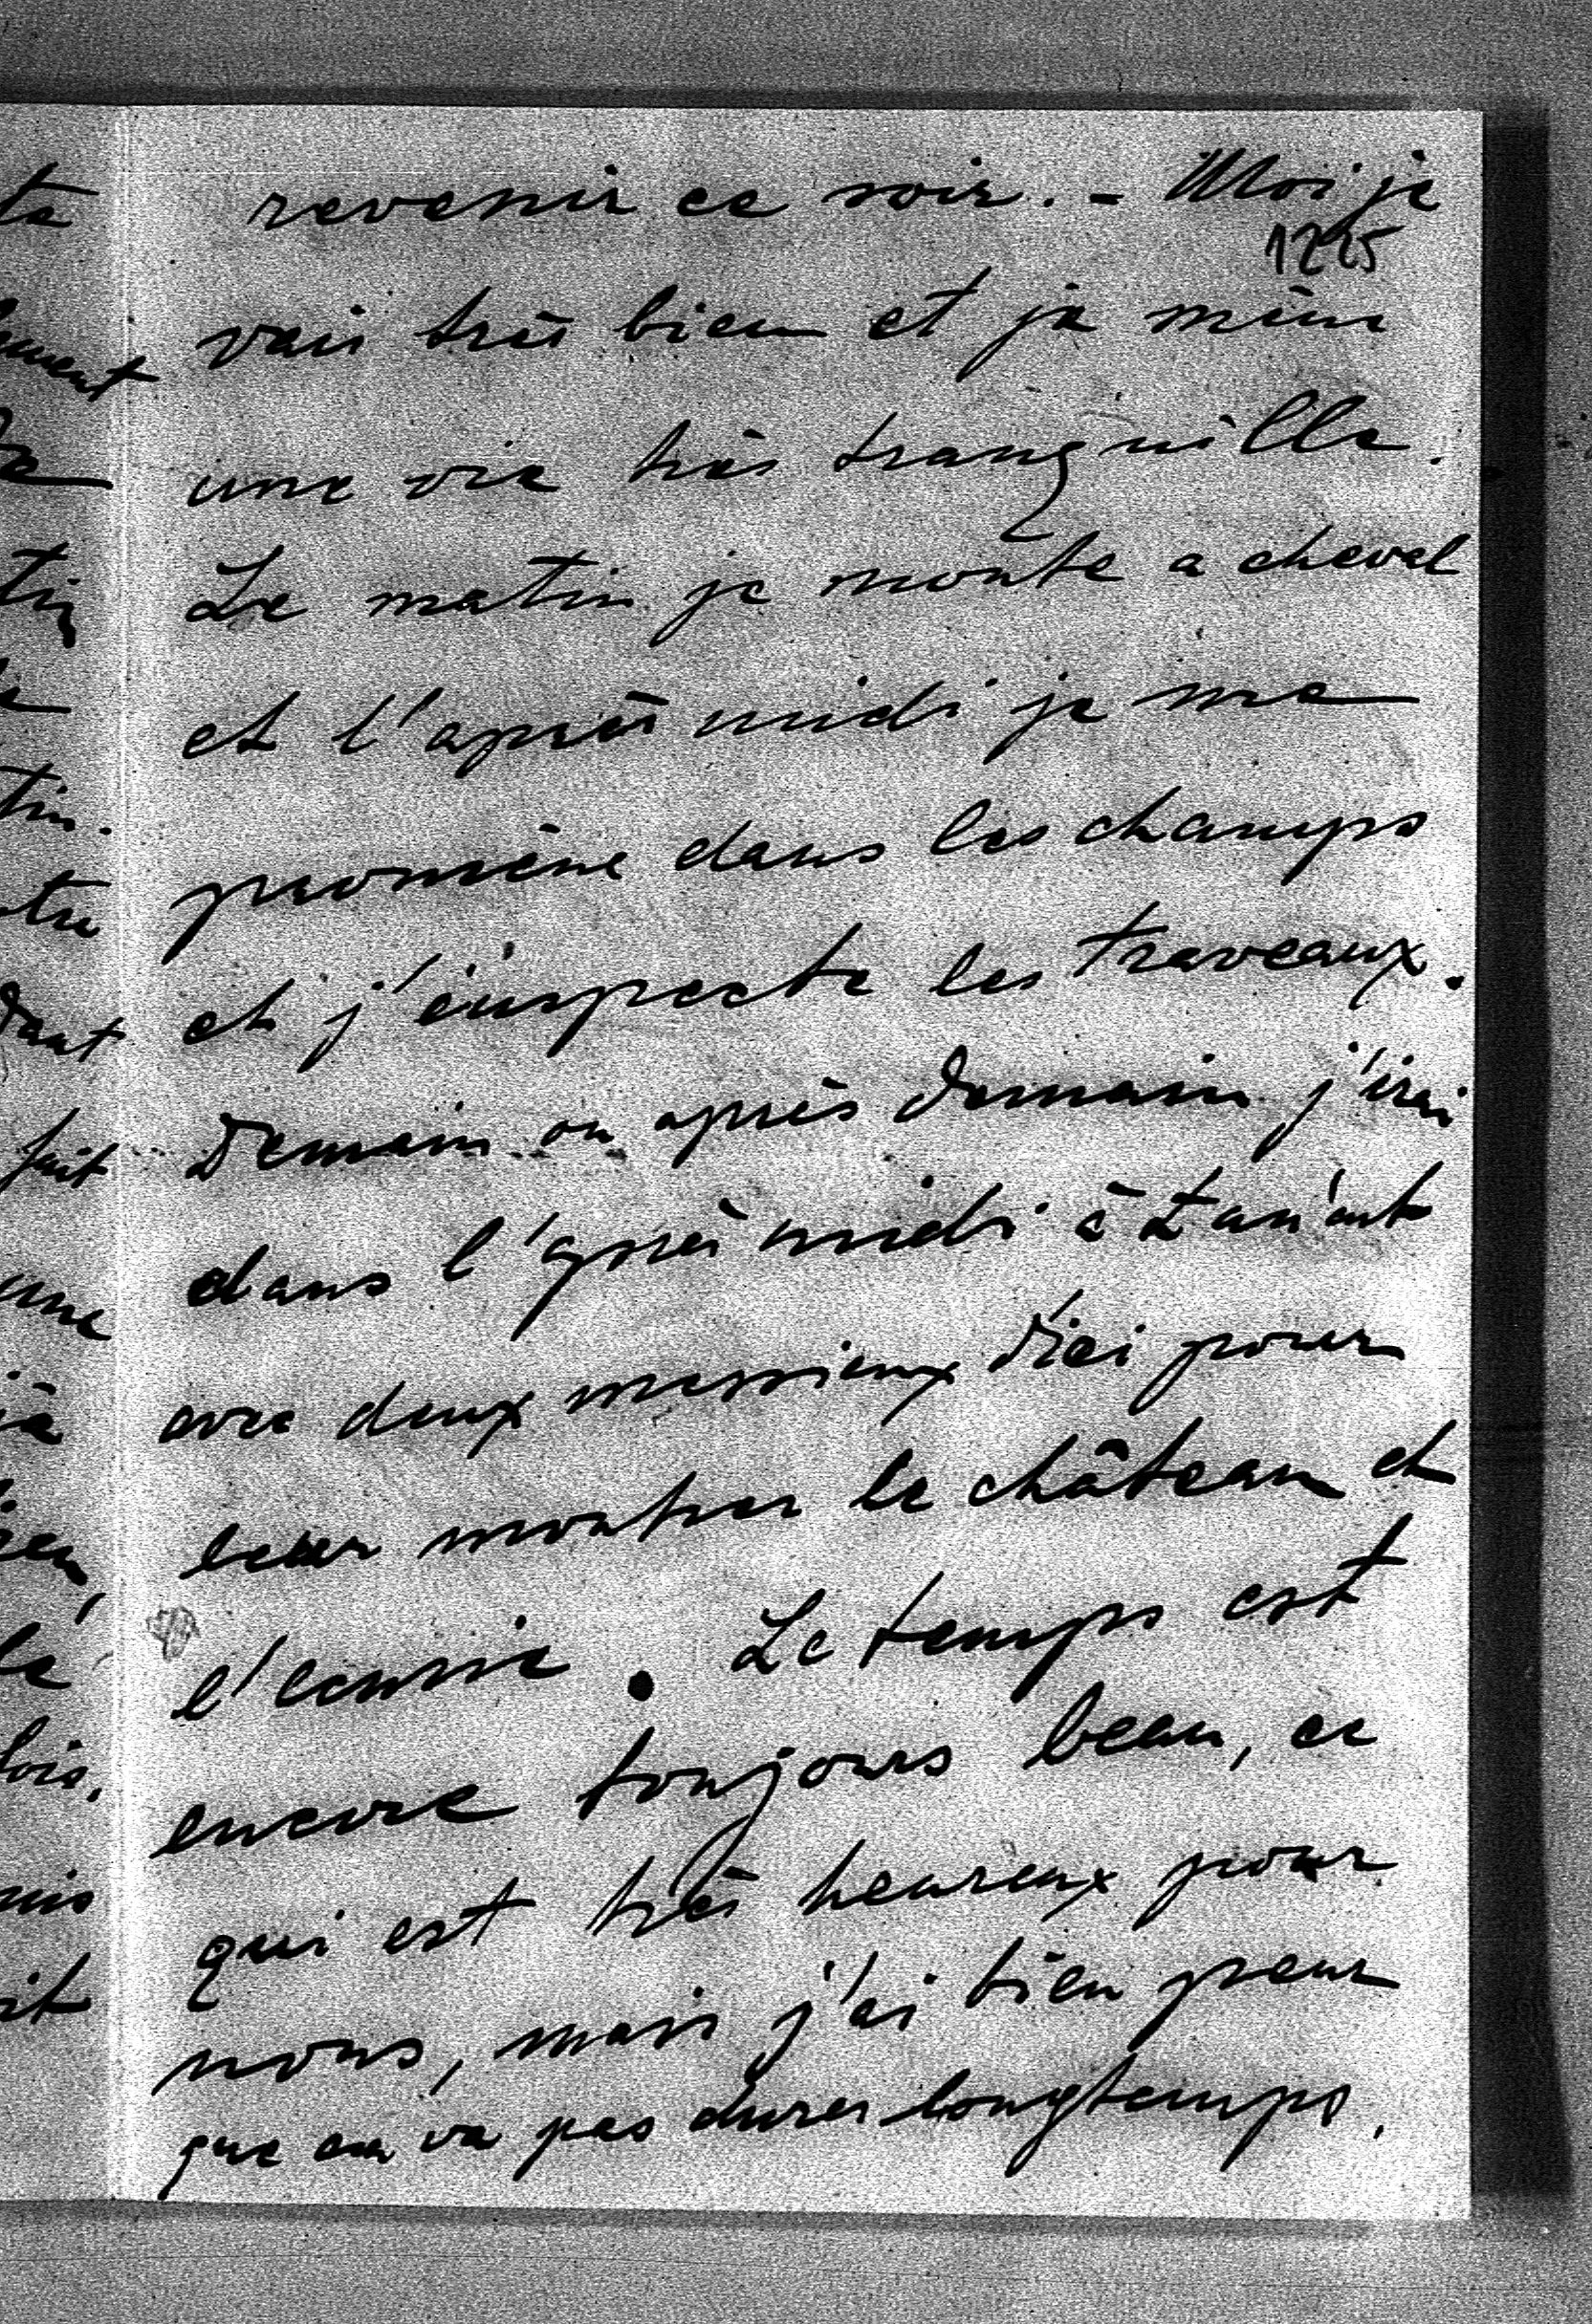 revenir ce soir. - Moi je
1225
vais très bien et je mène
une vie très tranquille.
Le matin je monte a cheval
et l'après midi je me
promène dans les champs
et j'inspecte les traveaux.
Demain ou après demain j'irai
dans l'après midi à
avec deux messieux d'ici pour
leur montrer le château et
l'ecurie. Le temps est
encore toujours beau, ce
qui est très heureux pour
nous, mais j'ai bien peur
que ca va pas durer longtemps.
te
tin
tin.
fait
une
fois,